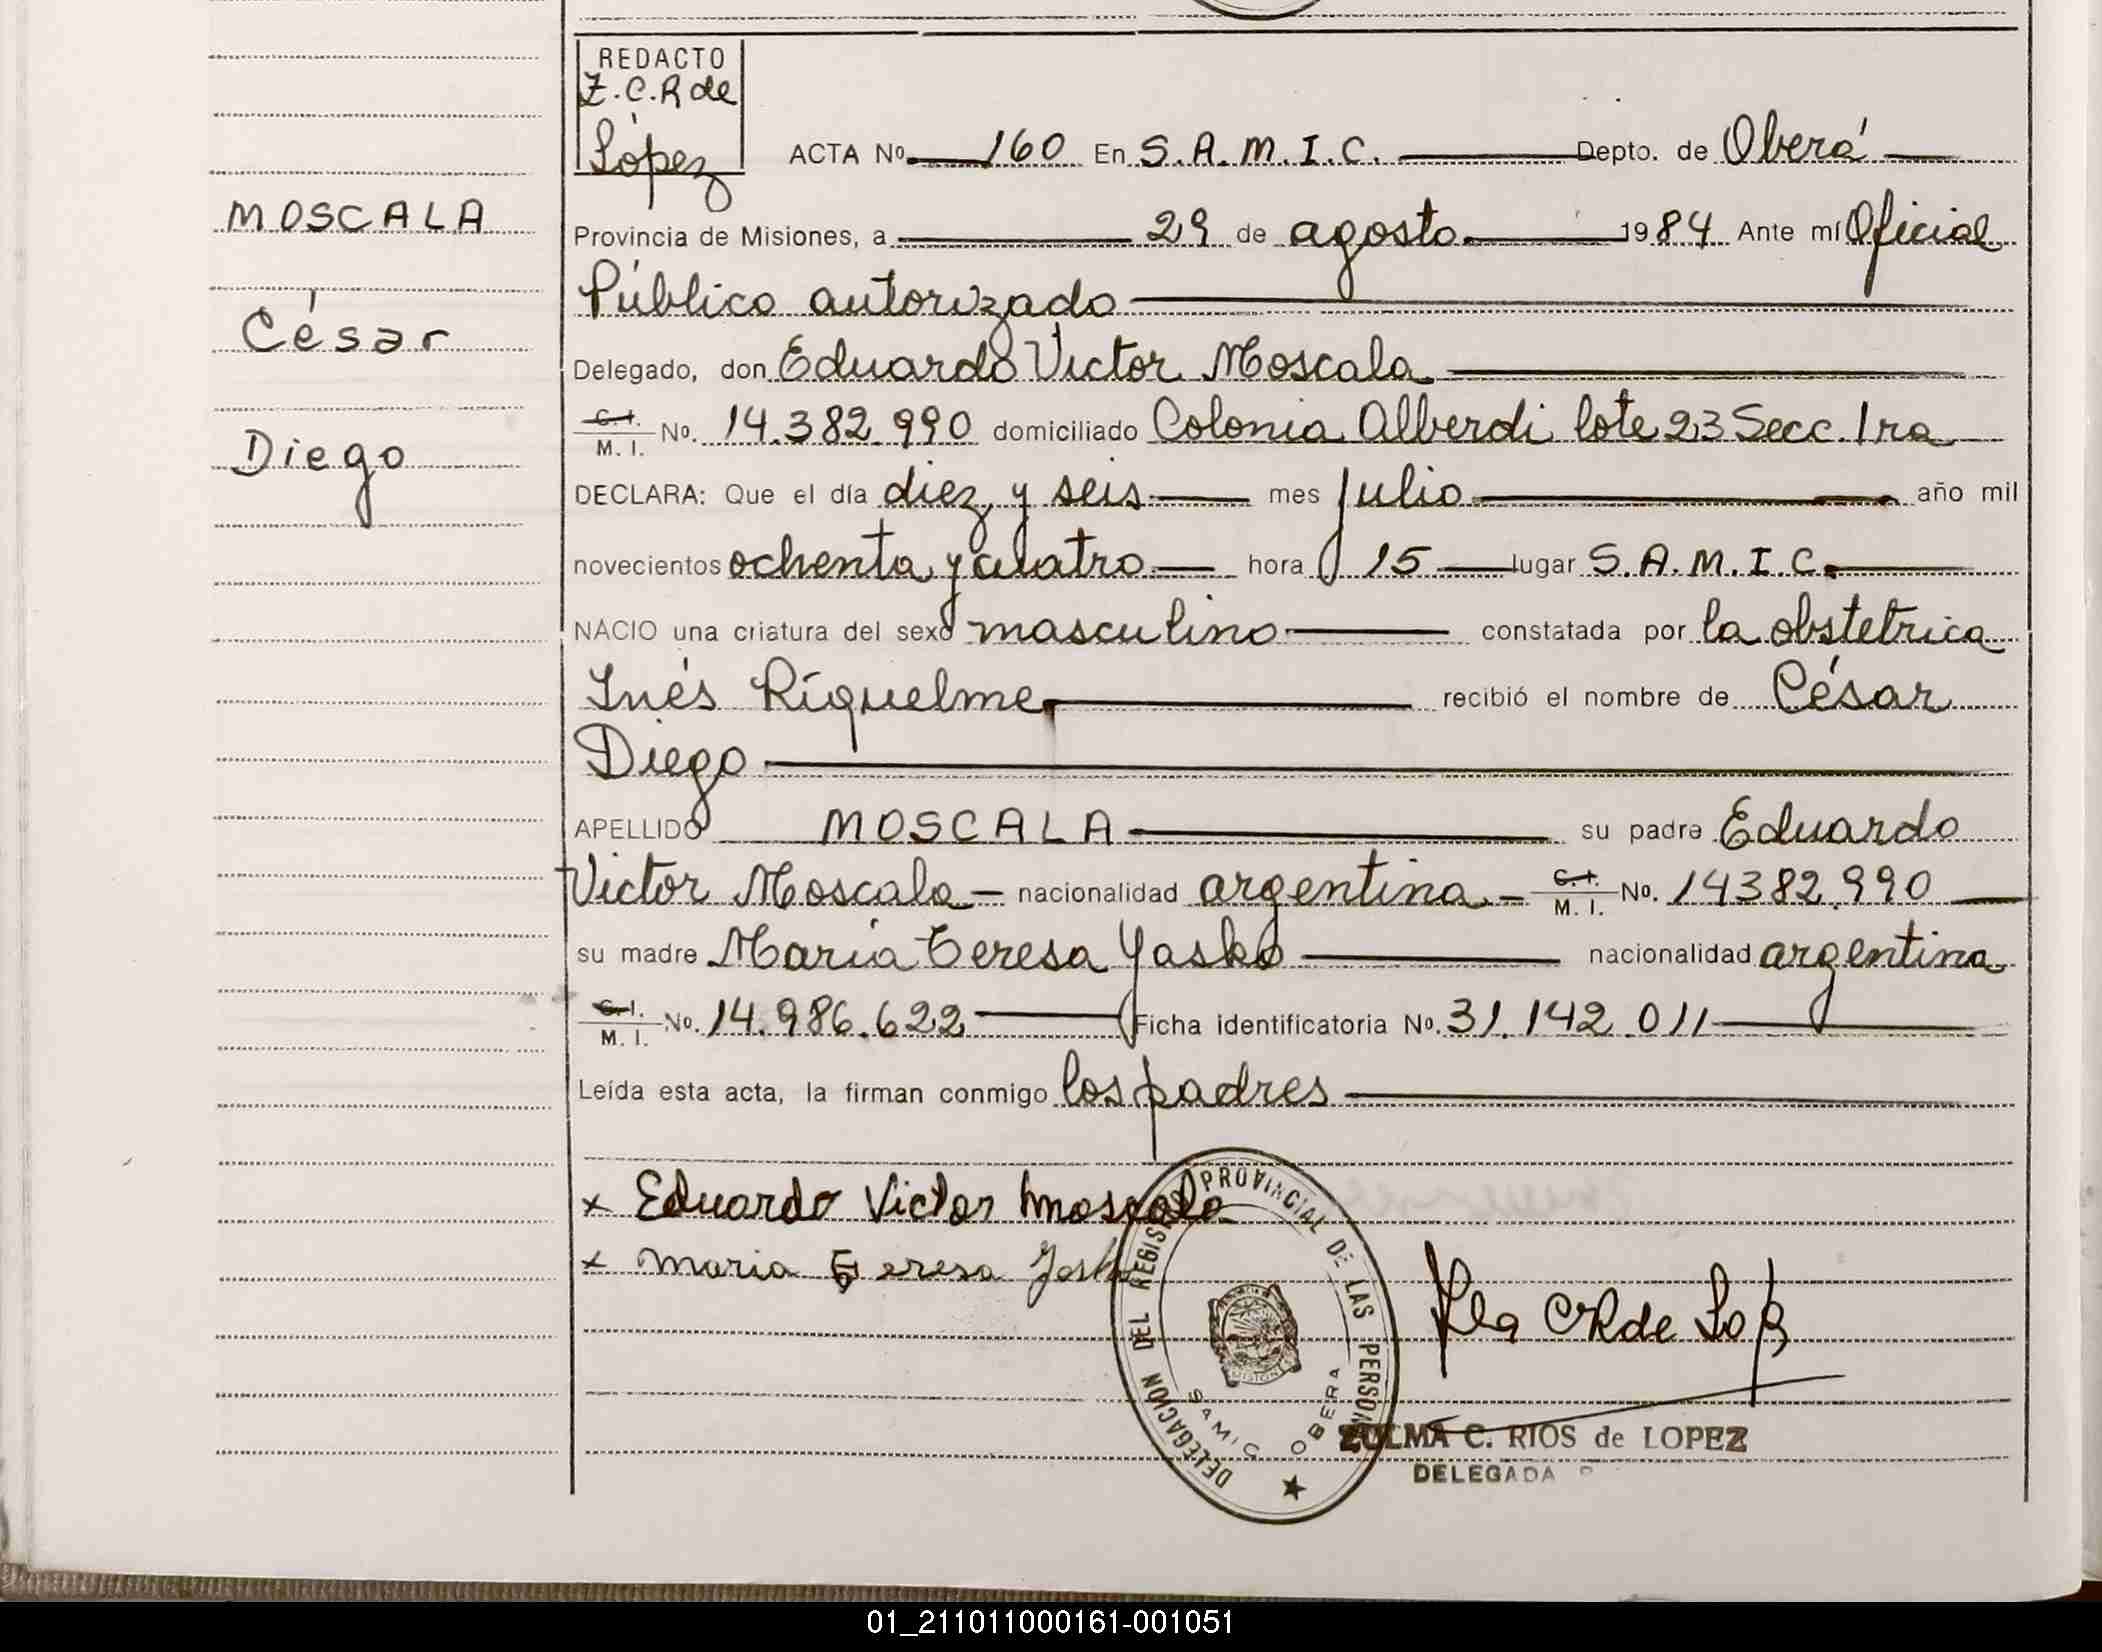 REDACTO
Z.C.R de
López
ACTA No. 160 En S.A.M.I.C. Depto. de Oberá
MOSCALA
Provincia de Misiones, a 29 de agosto 1984 Ante mí Oficial
Público autorizado
César
Delegado, don Eduardo Víctor Moscala
C.I. M.I. No. 14.382.990 domiciliado Colonia Alberdi lote 23 Secc. 1ra
Diego
DECLARA: Que el día diez y seis mes julio año mil
novecientos ochenta y cuatro hora 15 lugar S.A.M.I.C.
NACIO una criatura del sexo masculino constatada por la obstetrica
Inés Ríquelme recibió el nombre de César
Diego
APELLIDO MOSCALA su padre Eduardo
Victor Moscala nacionalidad argentina C.I. M.I. No. 14382.990
su madre María Teresa Yasko nacionalidad argentina
C.I. M.I. No. 14.986.622 Ficha identificatoria No. 31.142.011
Leída esta acta, la firman conmigo los padres
x Eduardo Victor Moscala
x Maria Teresa
DELEGACIÓN DEL REGISTRO PROVINCIAL DE LAS PERSONAS
SAMIC OBERA
CR de
ZULMA C. RIOS de LOPEZ
DELEGADA
01_211011000161-001051